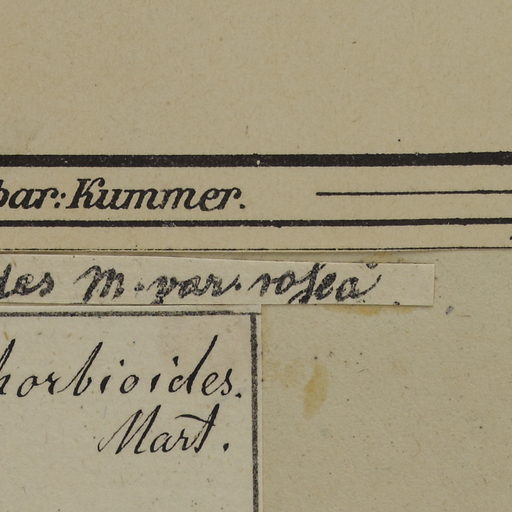 bar: Kummer.
des M. var. rosea
horbioides.
Mart.